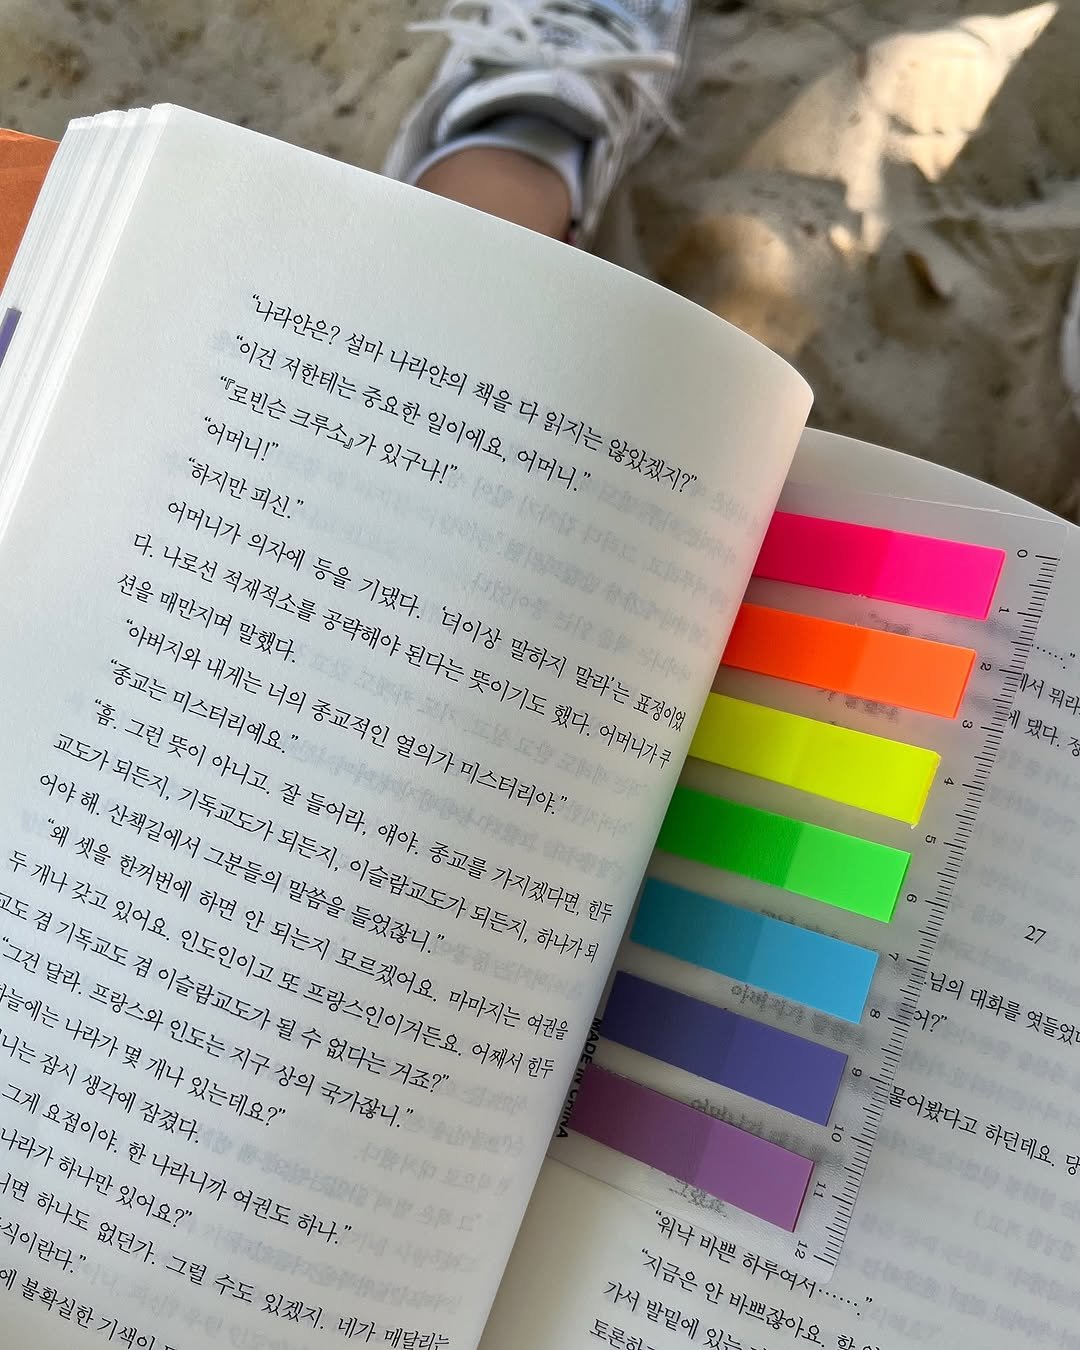 “나라얀은? 설마 나라얀의 책을 다 읽지는 않았겠지?”
“이건 저한테는 중요한 일이에요, 어머니.”
“『로빈슨 크루소』가 있구나!”
“어머니!”
“하지만 피신.”
어머니가 의자에 등을 기댔다. ‘더이상 말하지 말라’는 표정이었
다. 나로선 적재적소를 공략해야 된다는 뜻이기도 했다. 어머니가 쿠
션을 매만지며 말했다.
“아버지와 내게는 너의 종교적인 열의가 미스터리야.”
“종교는 미스터리예요.”
“흠. 그런 뜻이 아니고. 잘 들어라, 얘야. 종교를 가지겠다면, 힌두
교도가 되든지, 기독교도가 되든지, 이슬람교도가 되든지, 하나가 되
어야 해. 산책길에서 그분들의 말씀을 들었잖니.”
“왜 셋을 한꺼번에 하면 안 되는지 모르겠어요. 마마지는 여권을
두 개나 갖고 있어요. 인도인이고 또 프랑스인이거든요. 어째서 힌두
교도 겸 기독교도 겸 이슬람교도가 될 수 없다는 거죠?”
“그건 달라. 프랑스와 인도는 지구 상의 국가잖니.”
하늘에는 나라가 몇 개나 있는데요?”
잠시 생각에 잠겼다.
그게 요점이야. 한 나라니까 여권도 하나.”
나라가 하나만 있어요?”
하나도 없던가. 그럴 수도 있겠지. 네가 매달리는
불확실한 기색이
0
1
2
3
4
5
6
7
8
9
10
11
12
MADE IN CHINA
……”
뭐라
댔다.
27
대화를 엿들었
물어봤다고 하던데요.
“워낙 바쁜 하루여서……”
“지금은 안 바쁘잖아요.
가서 발밑에 있는